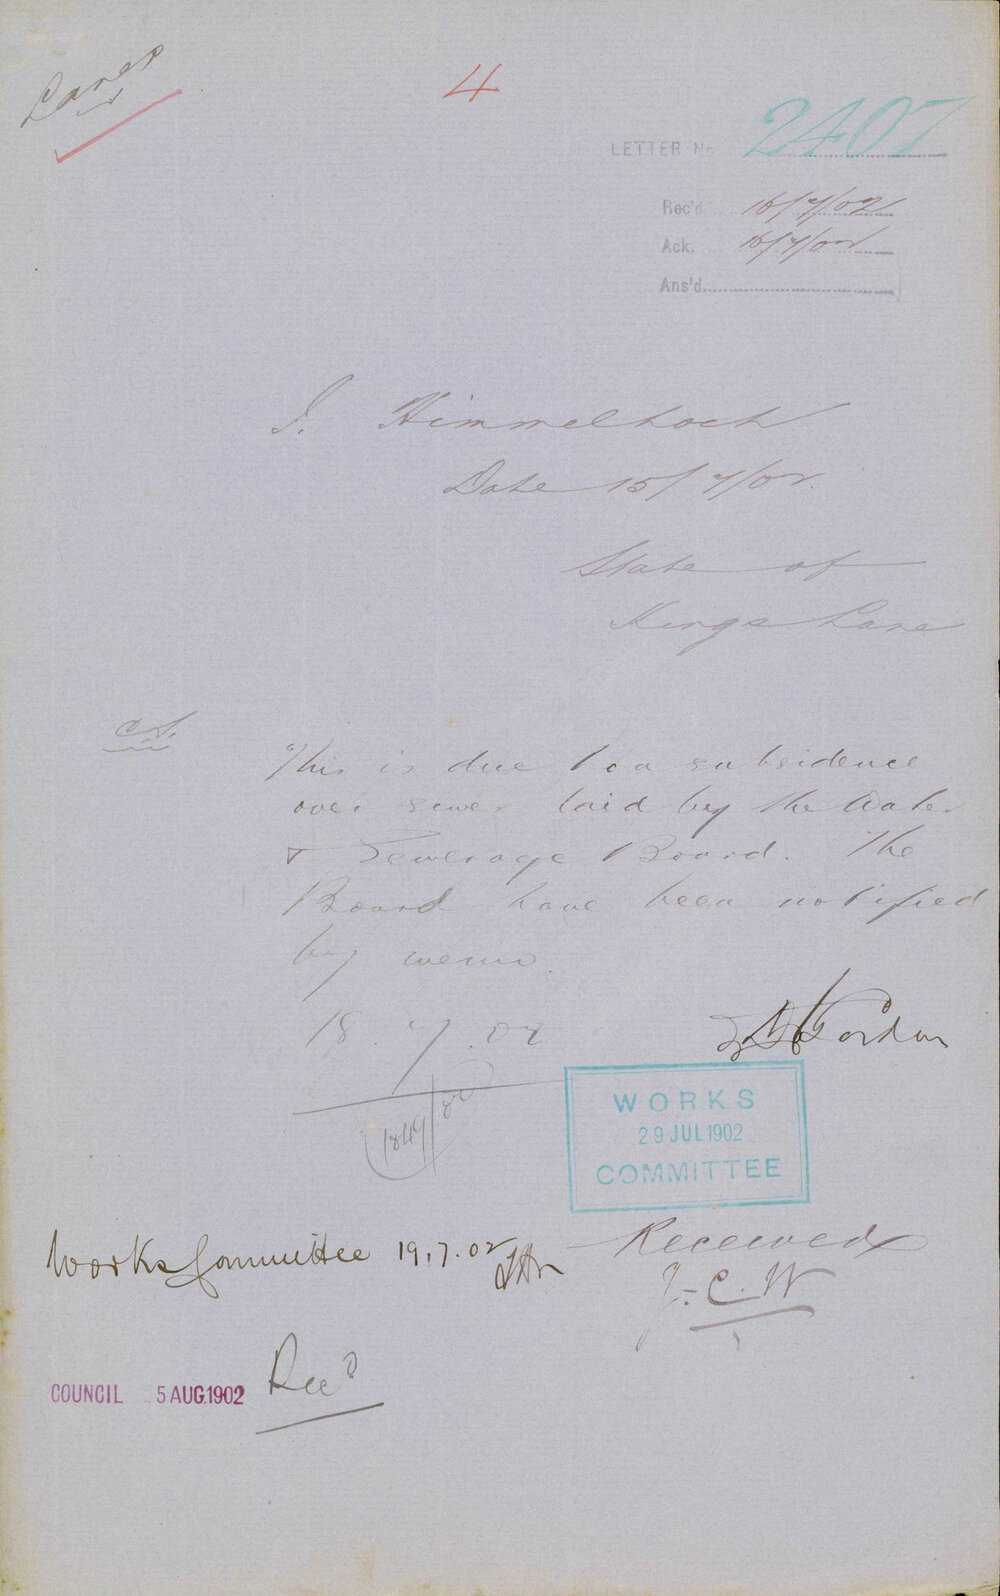 Lanes
4
LETTER No 2407
Rec'd 16/7/02
Ack. 16/7/02
Ans'd
I. Himmelhoch
Date 15/7/02.
State of
Kings Lane
C.S.
This is due to a subsidence
over sewer laid by the Water
& Sewerage Board. The
Board have been notified
by memo.
18.7.02
Gordon
1849/02
WORKS
29 JUL 1902
COMMITTEE
Works Committee 19.7.02
Received
J.C.W
COUNCIL 5 AUG. 1902 Recd